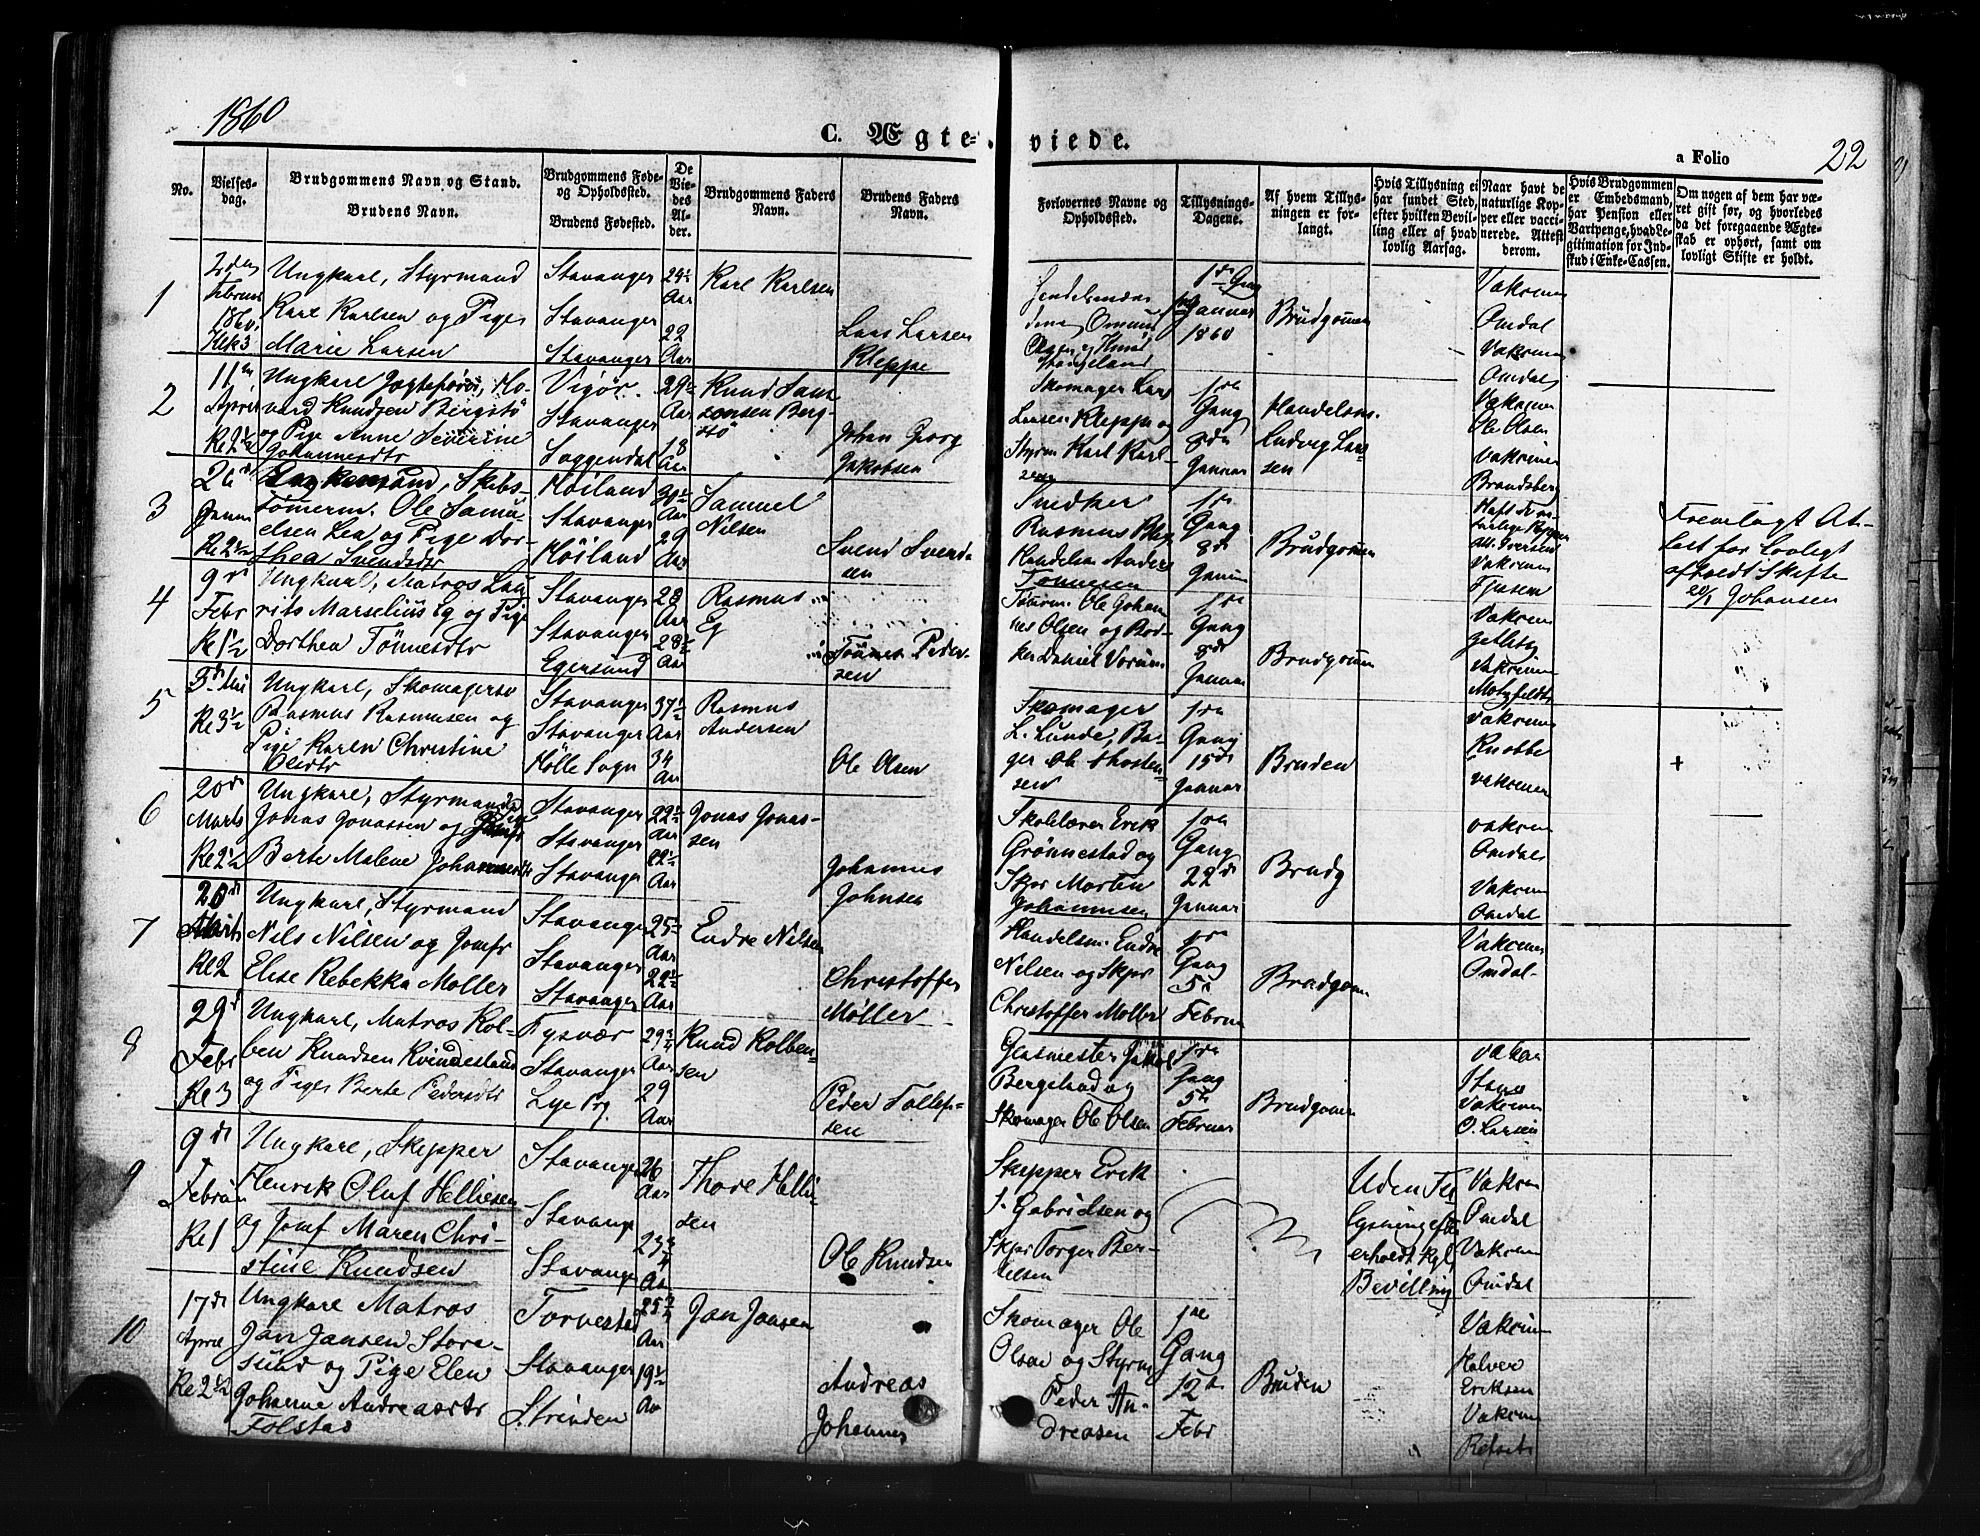 1860
C. Ægte-
viede.
a Folio
22
No.
Vielses-
dag.
Brudgommens Navn og Stand.
Brudens Navn.
Brudgommens Føde-
og Opholdssted.
Brudens Fødested.
De
Vie-
des
Al-
der.
Brudgommens Faders
Navn.
Brudens Faders
Navn.
Forlovernes Navne og
Opholdssted.
Tillysnings-
Dagene.
Af hvem Tillys-
ningen er for-
langt.
Hvis Tillysning ei
har fundet Sted,
efter hvilken Bevil-
ling eller af hvad
lovlig Aarsag.
Naar havt de
naturlige Kop-
per eller vacci-
nerede. Attest
derom.
Hvis Brudgommen
er Embedsmand,
har Pension eller
Vartpenge, hvad Le-
gitimation for Ind-
skud i Enke-Cassen.
Om nogen af dem har væ-
ret gift før, og hvorledes
da det foregaaende Ægte-
skab er ophørt, samt om
lovligt Skifte er holdt.
1
2den
Februar
1860
Kl. 3
Ungkarl, Styrmand
Karl Karlsen og Pige
Marie Larsen
Stavanger
Stavanger
Stavanger
24½
Aar
22
Aar
Karl Karlsen
Lars Larsen
Kleppe
1ste Gang
Januar
1860
Brudgommen
Vakcinen
Omdal
Vakcinen
Omdal
2
11te
April
Kl 2½
Ungkarl Jægtefører, Ho-
vard Knudsen Bergstø
og Pige Anne Severine
Johannesdtr
Vigør
Stavanger
Soggendal
29½
Aar
18
Aar
Knud Jans
sønsen Berg-
stø
Johan Georg
Jakobsen
Skomager Lars
Larsen Kleppe og
Styrm Karl Karl-
sen
1ste
Gang
8de
Januar
Handelsm.
Ludvig Lar-
sen
Vakcinen
Ole Olsen
Vakcinen
Brandsberg
3
26de
Januar
Kl 2½
Enkemand, Skibs-
Tømerm. Ole Samu-
elsen Lea og Pige Dor-
thea Svendsdtr
Høiland
Stavanger
Høiland
Aar
29
Aar
Samuel
Nilsen
Svend Svend-
sen
Snedker
Rasmus
Anders
Tønnesen
1ste
Gang
8de
Januar
Brudgommen
Havt de na-
turlige Kopper
Att. Iversen
Vakcinen
Fremlagt At-
test for lovligt
afholdt Skifte
Johansen
4
9de
Febr
Kl 1½
Ungkarl, Matros Lau-
rits Marselius Eg og Pige
Dorthea Tönnesdtr
Stavanger
Stavanger
Egersund
28
Aar
28½
Aar
Rasmus
Eg
Tönnes Peder-
sen
Tömrm. Ole Johan-
nes Olsen og Bød-
ker Daniel
1ste
Gang
8de
Januar
Brudgommen
Vakcinen
Vakcinen
Motzfeldt
5
Kl 3½
Ungkarl, Skomagersv
Rasmus Rasmusen og
Pige Karen Christine
Olesdtr
Stavanger
Stavanger
Holle Sogn
37½
Aar
34
Aar
Rasmus
Andersen
Ole Olsen
Skomager
L. Lunde, Ba-
ger Ole Thosten-
sen
1ste
Gang
15de
Januar
Bruden
Vakcinen
Knobbe
Vakcinen
+
6
20de
Marts
Kl 2½
Ungkarl, Styrmand
Jonas Jonassen og Pige
Berte Malene Johannesdtr
Stavanger
Stavanger
Stavanger
22½
Aar
22½
Aar
Jonas Jonas-
sen
Johannes
Johnsen
Skolelærer Erik
Grønnestad og
Skpr Morten
Johannesen
1ste
Gang
22de
Januar
Brudg
Vakcinen
Omdal
Vakcinen
Omdal
7
20de
Marts
Kl 2
Ungkarl, Styrmand
Nils Nilsen og Jomfr
Elise Rebekka Møller
Stavanger
Stavanger
Stavanger
25½
Aar
22½
Aar
Endre Nilsen
Christoffer
Møller
Handelsm. Endre
Nilsen og Skpr
Christoffer Møller
1ste
Gang
5te
Februar
Brudgommen
Vakcinen
Omdal
8
29de
Febr
Kl 3
Ungkarl, Matros Kol-
ben Knudsen Kvindesland
og Pige Berte Pedersdtr
Tysvær
Stavanger
Lye Prg.
Aar
29
Aar
Knud Kolben-
sen
Peder Tollef-
sen
Glasmester Jakob
Bergsland og
Skomager Ole Olsen
1ste
Gang
5te
Februar
Brudgommen
Vakcinen
Vakcinen
O. Larsen
9
9de
Februar
Kl 1
Ungkarl, Skipper
Henrik Oluf Helliesen
og Jomf Maren Chri-
stine Knudsen
Stavanger
Stavanger
Stavanger
26
Aar
23¾
Aar
Thore Helli-
sen
Ole Knudsen
Skipper Erik
S. Gabrielsen og
Skpr Torger Ber-
telsen
Uden Til-
lysning efter
erholdt Kgl.
Bevilling
Vakcinen
Omdal
Vakcinen
Omdal
10
17de
April
Kl 2½
Ungkarl Matros
Jan Jansen Store-
sund og Pige Elen
Johanne Andreasdtr
Folstad
Torvestad
Stavanger
Strinden
25¾
Aar
19½
Aar
Jan Jansen
Andreas
Johannes
Skomager Ole
Olsen og Styrm
Peder An-
dreasen
1ste
Gang
12te
Febr
Bruden
Vakcinen
Halvor
Eriksen
Vakcinen